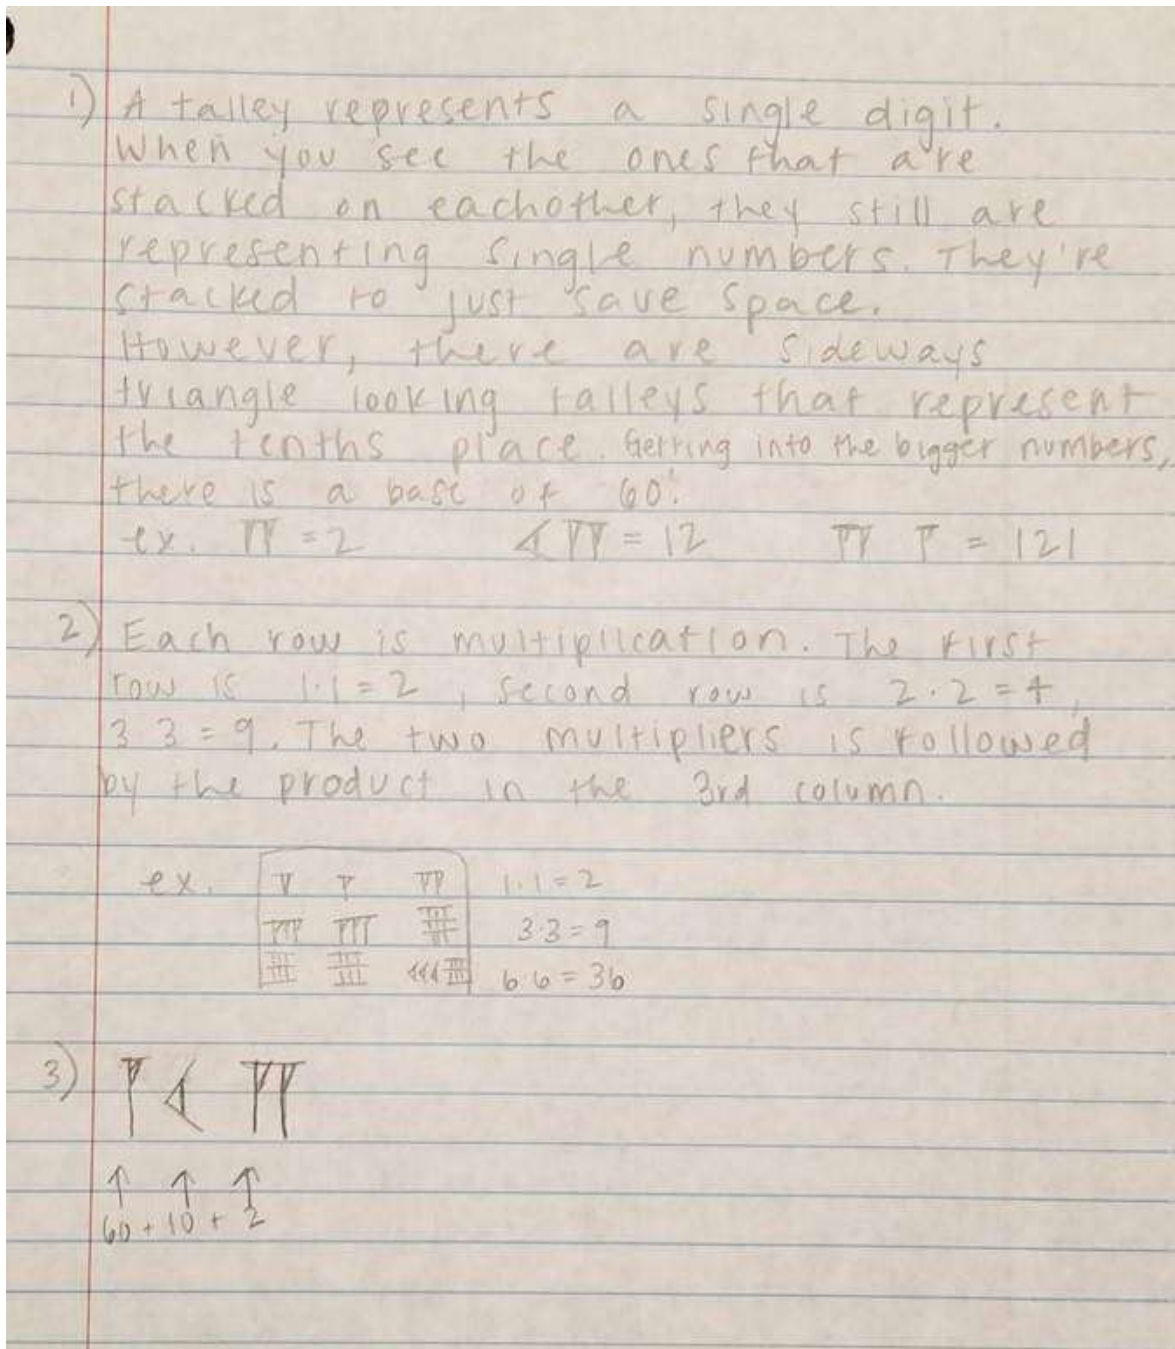 1) A talley represents a single digit.
When you see the ones that are
stacked on eachother, they still are
representing single numbers. They're
stacked to just save space.
However, there are sideways
triangle looking talleys that represent
the tenths place. Getting into the bigger numbers,
there is a base of 60.
ex. 𒐖 = 2 𒌋𒐖 = 12 𒐖 𒐕 = 121
2) Each row is multiplication. The first
row is 1·1=2, second row is 2·2=4,
3 3=9. The two multipliers is followed
by the product in the 3rd column.
ex. 𒐕 𒐕 𒐖 1·1=2
𒐗 𒐗 𒐞 3·3=9
𒐚 𒐚 𒌍𒐚 6 6=36
3) 𒐕 𒌋 𒐖
↑ ↑ ↑
60 + 10 + 2